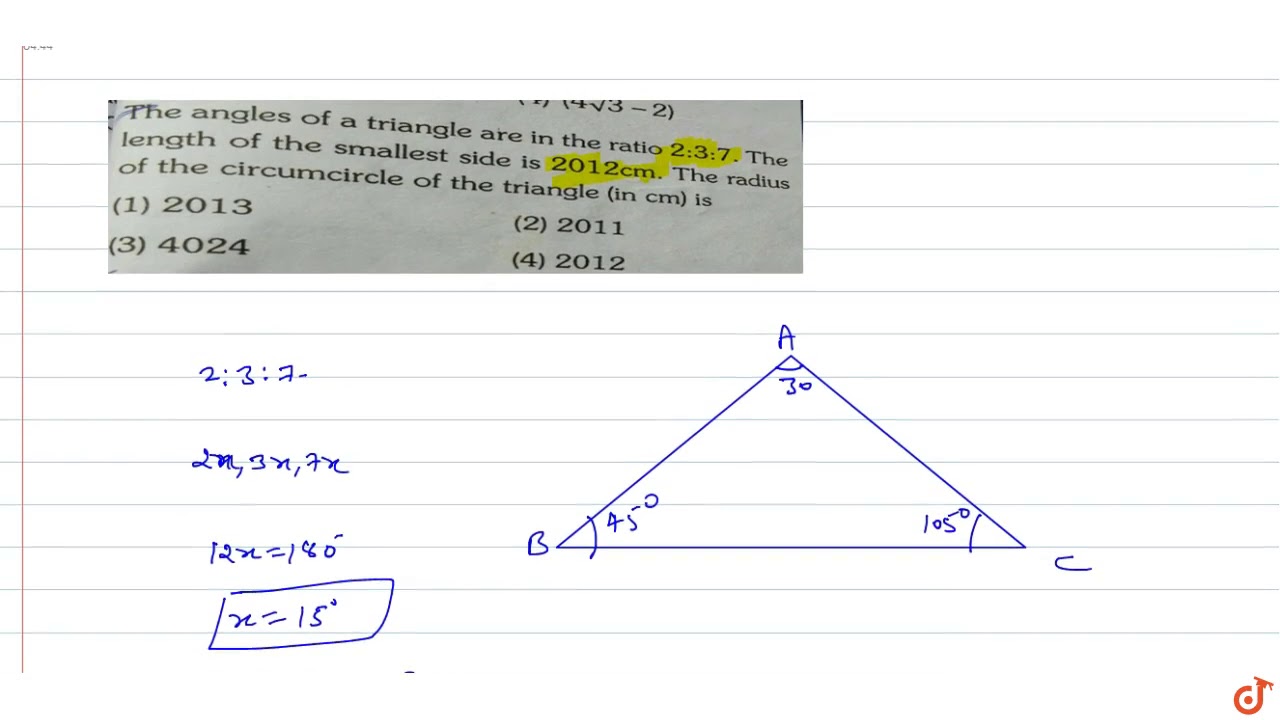 04:44
(4√3 – 2)
The angles of a triangle are in the ratio 2:3:7. The
length of the smallest side is 2012cm. The radius
of the circumcircle of the triangle (in cm) is
(1) 2013
(2) 2011
(3) 4024
(4) 2012
A
30
2:3:7
2x, 3x, 7x
45°
105°
B
C
12x=180°
x=15°